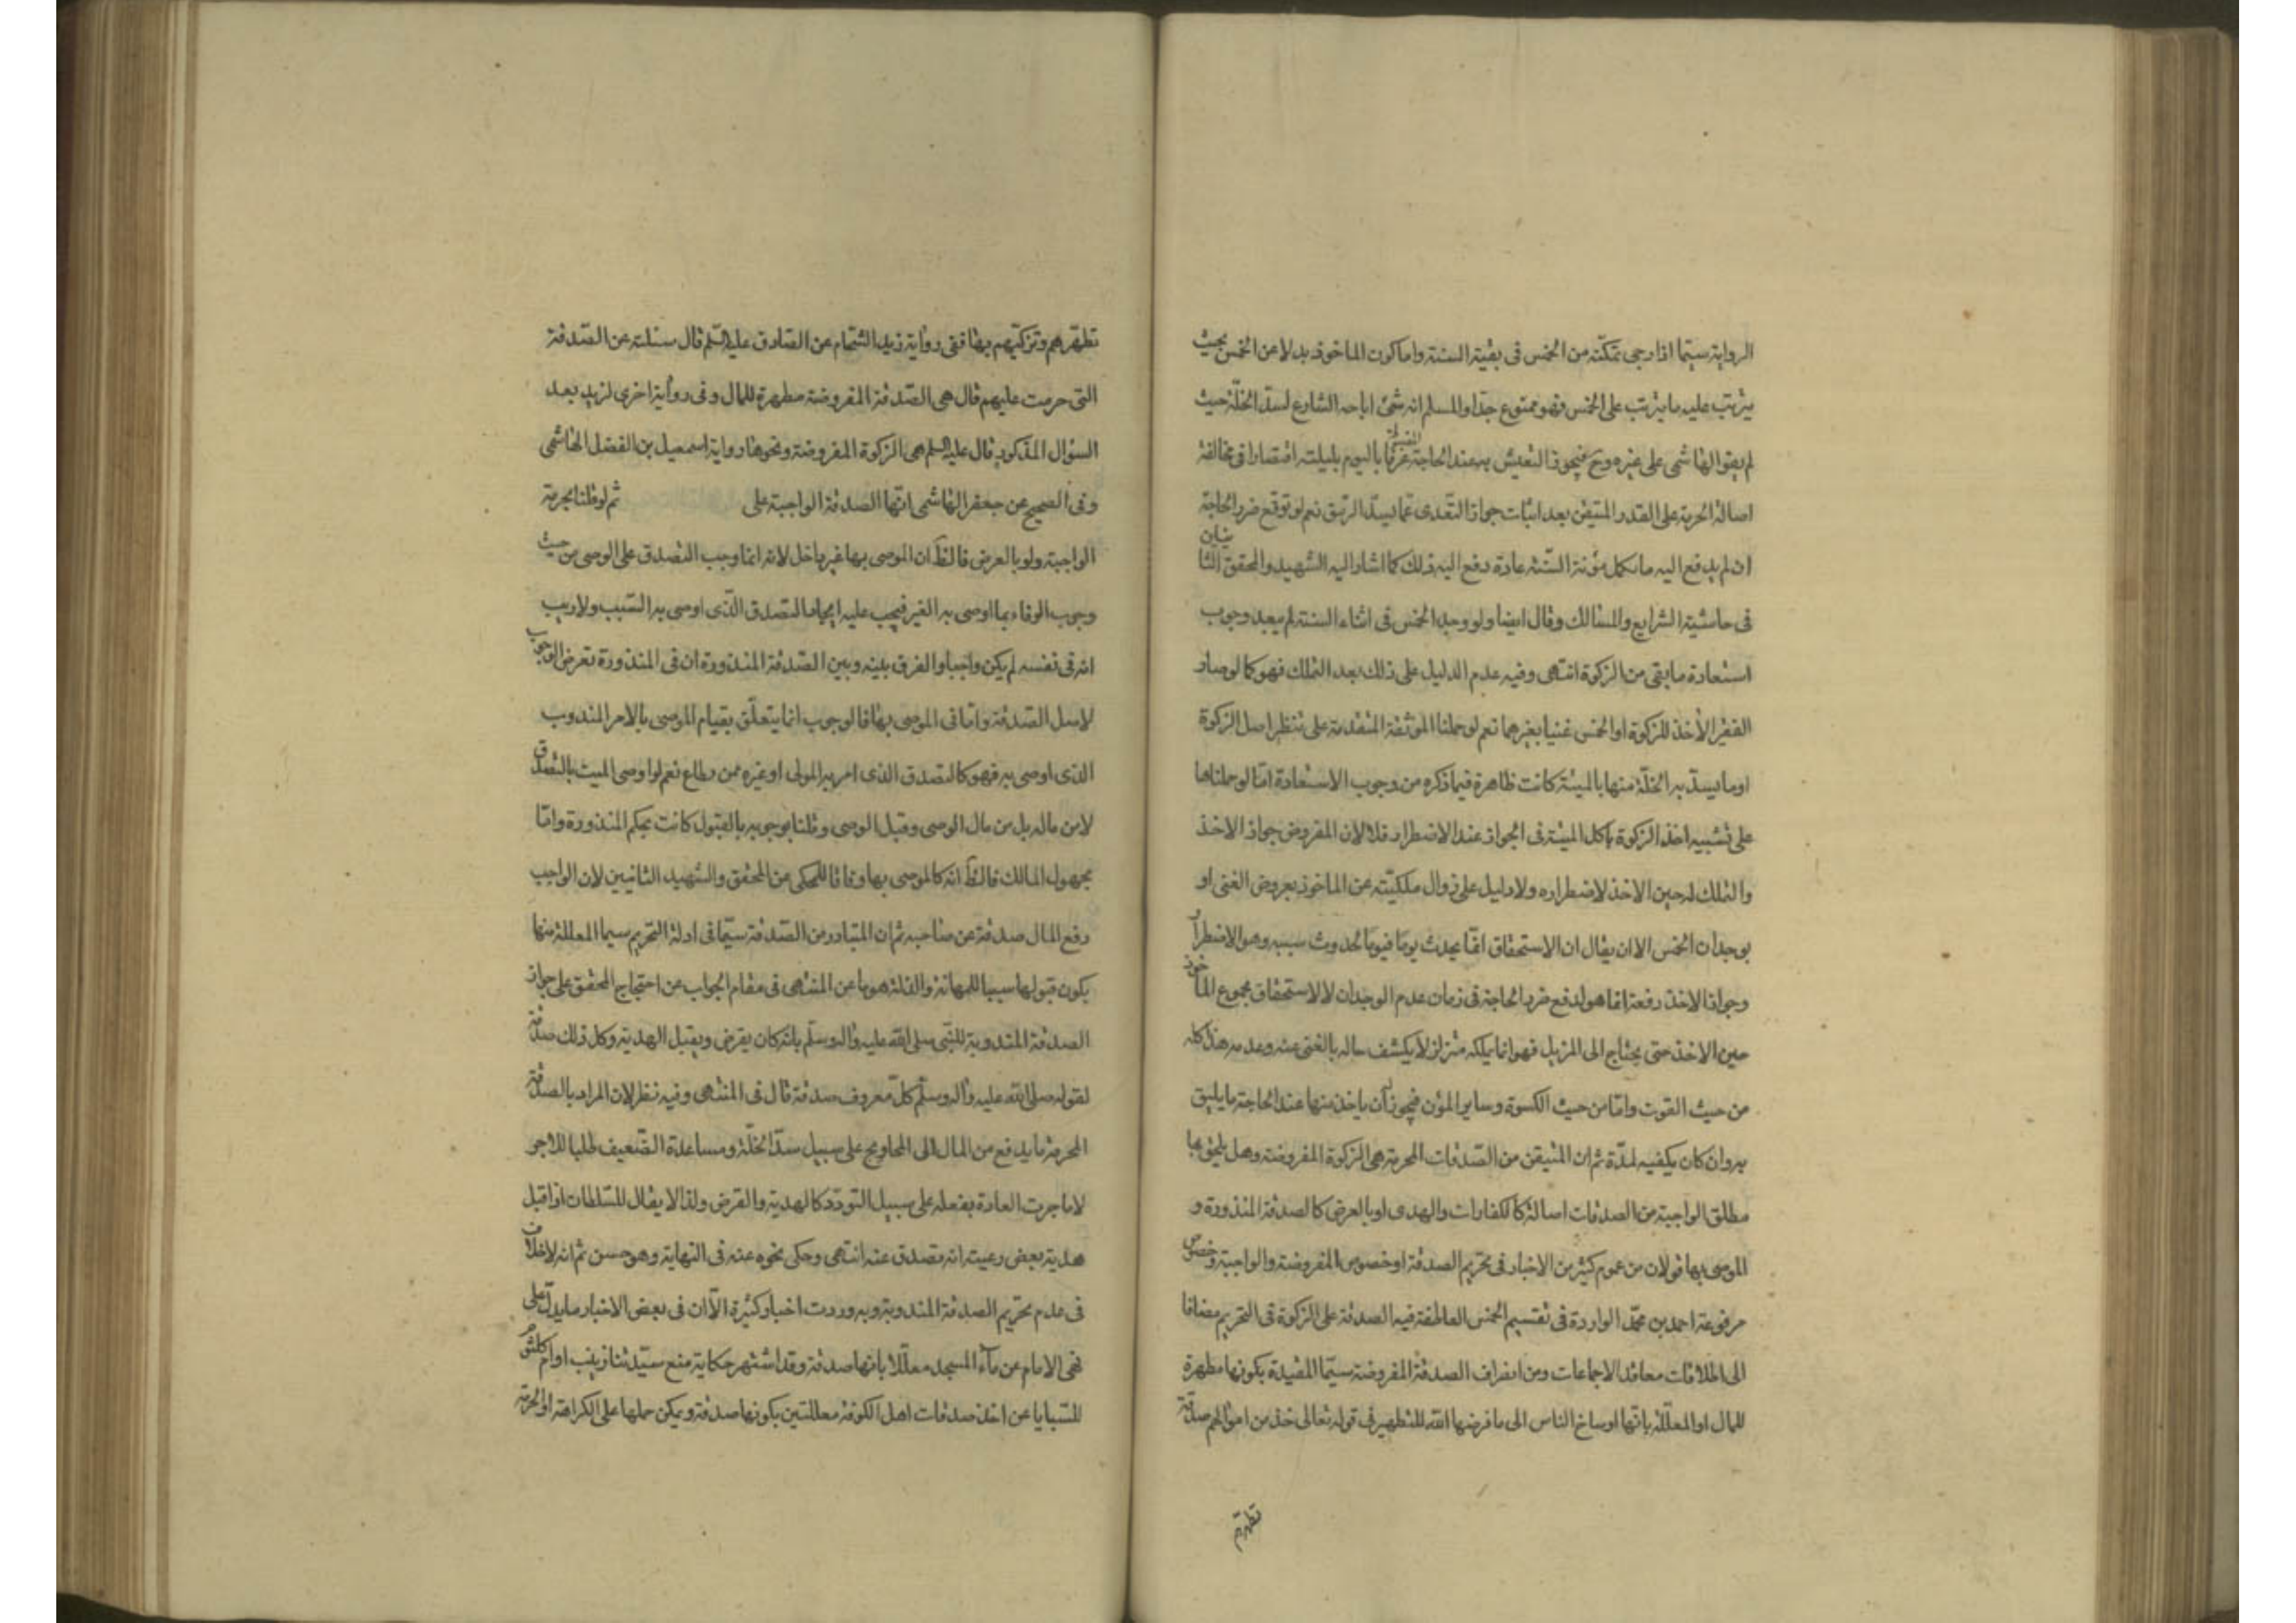 الرواية سيّما اذا رجى تمكّنه من الخمس فى بقيّة السنة واما كون الماخوذ بدلا عن الخمس بحيث
يترتب عليه ما يترتب على الخمس فهو ممنوع جدّا والمسلم انه شئ اباحه الشارع لسدّ الخلّة حيث
لم يقو الهاشمى على غيره وح فيجوز التعيش به عند الحاجة باليوم بليلته اقتصارا فى مخالفة
اصالة الحرمة على القدر المتيقن بعد اثبات جواز التعدى عما يسدّ الرمق نعم لو توقع ضرر الحاجة
ان لم يدفع اليه ما يكمل مؤنة السّنة عادة دفع اليه ذلك كما اشار اليه الشهيد والمحقق الثانيان
فى حاشية الشرايع والمسالك وقال ايضا ولو وجد الخمس فى اثناء السنة لم يبعد وجوب
استعادة ما بقى من الزكوة انتهى وفيه عدم الدليل على ذلك بعد التملك فهو كما لو صار
الفقير الأخذ للزكوة او الخمس غنيا بغيرهما نعم لو حملنا الموثقة المتقدمة على تنظر اصل الزكوة
او ما يسدّ به الخلّة منها بالميتة كانت ظاهرة فيما ذكره من وجوب الاستعادة امّا لو حملناها
على تشبيه اخذ الزكوة باكل الميتة فى الجواز عند الاضطرار فلا لان المفروض جواز الاخذ
والتملك له حين الاخذ لاضطراره ولا دليل على زوال ملكيّته عن الماخوذ بعروض الغنى او
بوجدان الخمس الا ان يقال ان الاستحقاق انّما يحدث يوما فيوما لحدوث سببه وهو الاضطرار
وجواز الاخذ دفعة انما هو لدفع ضرر الحاجة فى زمان عدم الوجدان لا لاستحقاق مجموع الماخوذ
حين الاخذ حتى يحتاج الى المزيل فهو انما يملكه متزلزلا يكشف حاله بالغنى عنه وعدمه هذا كله
من حيث القوت وامّا من حيث الكسوة وساير المؤن فيجوز له ان ياخذ منها عند الحاجة ما يليق
به وان كان يكفيه لمدّة ثم ان المتيقن من الصّدقات المحرمة هى الزكوة المفروضة وهل يلحق بها
مطلق الواجبة من الصدقات اصالة كالكفارات والهدى او بالعرض كالصدقة المنذورة و
الموصى بها قولان من عموم كثير من الاخبار فى تحريم الصدقة او خصوص المفروضة والواجبة وخصوص
مرفوعة احمد بن محمّد الواردة فى تقسيم الخمس العاطفة فيه الصدقة على الزكوة فى التحريم مضافا
الى اطلاقات معاقد الاجماعات ومن انصراف الصدقة المفروضة سيّما المقيدة بكونها مطهرة
للمال او المعلّلة بانّها اوساخ الناس الى ما فرضها اللّه للتطهير فى قوله تعالى خذ من اموالهم صدقة
تطهّرهم
تطهّرهم وتزكّيهم بها ففى رواية زيد الشحّام عن الصّادق عليه السّلم قال سئلته عن الصّدقة
التى حرمت عليهم قال هى الصّدقة المفروضة مطهرة للمال وفى رواية اخرى لزيد بعد
السؤال المذكور قال عليه السلم هى الزكوة المفروضة ونحوها رواية اسمعيل بن الفضل الهاشمى
وفى الصحيح عن جعفر الهاشمى انّها الصدقة الواجبة على ثم لو قلنا بحرمة
الواجبة ولو بالعرض فالظ ان الموصى بها غير داخل لانه انما وجب التصدق على الوصى من حيث
وجوب الوفاء بما اوصى به الغير فيجب عليه ايجاد التصدق الّذى اوصى به السّبب ولا ريب
انه فى نفسه لم يكن واجبا والفرق بينه وبين الصّدقة المنذورة ان فى المنذورة تعرض الوجوب
لاصل الصّدقة وامّا فى الموصى بها فالوجوب انما يتعلّق بقيام الموصى بالامر المندوب
الذى اوصى به فهو كالتصدق الذى امر به المولى او غيره ممن يطاع نعم لو اوصى الميت بالتصدق
لا من ماله بل من مال الوصى وقبل الوصى وقلنا بوجوبه بالقبول كانت بحكم المنذورة وامّا
مجهول المالك فالظ انّه كالموصى بها وفاقا للمحكى عن المحقق والشهيد الثانيين لان الواجب
دفع المال صدقة عن صاحبه ثم ان المتبادر من الصّدقة سيّما فى ادلة التحريم سيما المعللة منها
بكون قبولها سببا للمهانة والذلة هو ما عن المنتهى فى مقام الجواب عن احتجاج المحقق على جواز
الصدقة المندوبة للنّبى صلى اللّه عليه واله وسلّم بانّه كان يقرض ويقبل الهدية وكل ذلك صدقة
لقوله صلى اللّه عليه واله وسلّم كلّ معروف صدقة قال فى المنتهى وفيه نظر لان المراد بالصدقة
المحرمة ما يدفع من المال الى المحاويج على سبيل سدّ الخلّة ومساعدة الضّعيف طلبا للاجر
لا ما جرت العادة بفعله على سبيل التودّد كالهدية والقرض ولذا لا يقال للسّلطان اذا قبل
هدية بعض رعيته انه تصدق عنه انتهى وحكى نحوه عنه فى النهاية وهو حسن ثم انه لا خلاف
فى عدم تحريم الصدقة المندوبة وبه وردت اخبار كثيرة الّا ان فى بعض الاخبار ما يدلّ على
نهى الامام عن ماء المسجد معلّلا بانها صدقة وقد اشتهر حكاية منع سيّدتنا زينب او ام كلثوم
للسّبايا عن اخذ صدقات اهل الكوفة معللتين بكونها صدقة ويمكن حملها على الكراهة او الحرمة